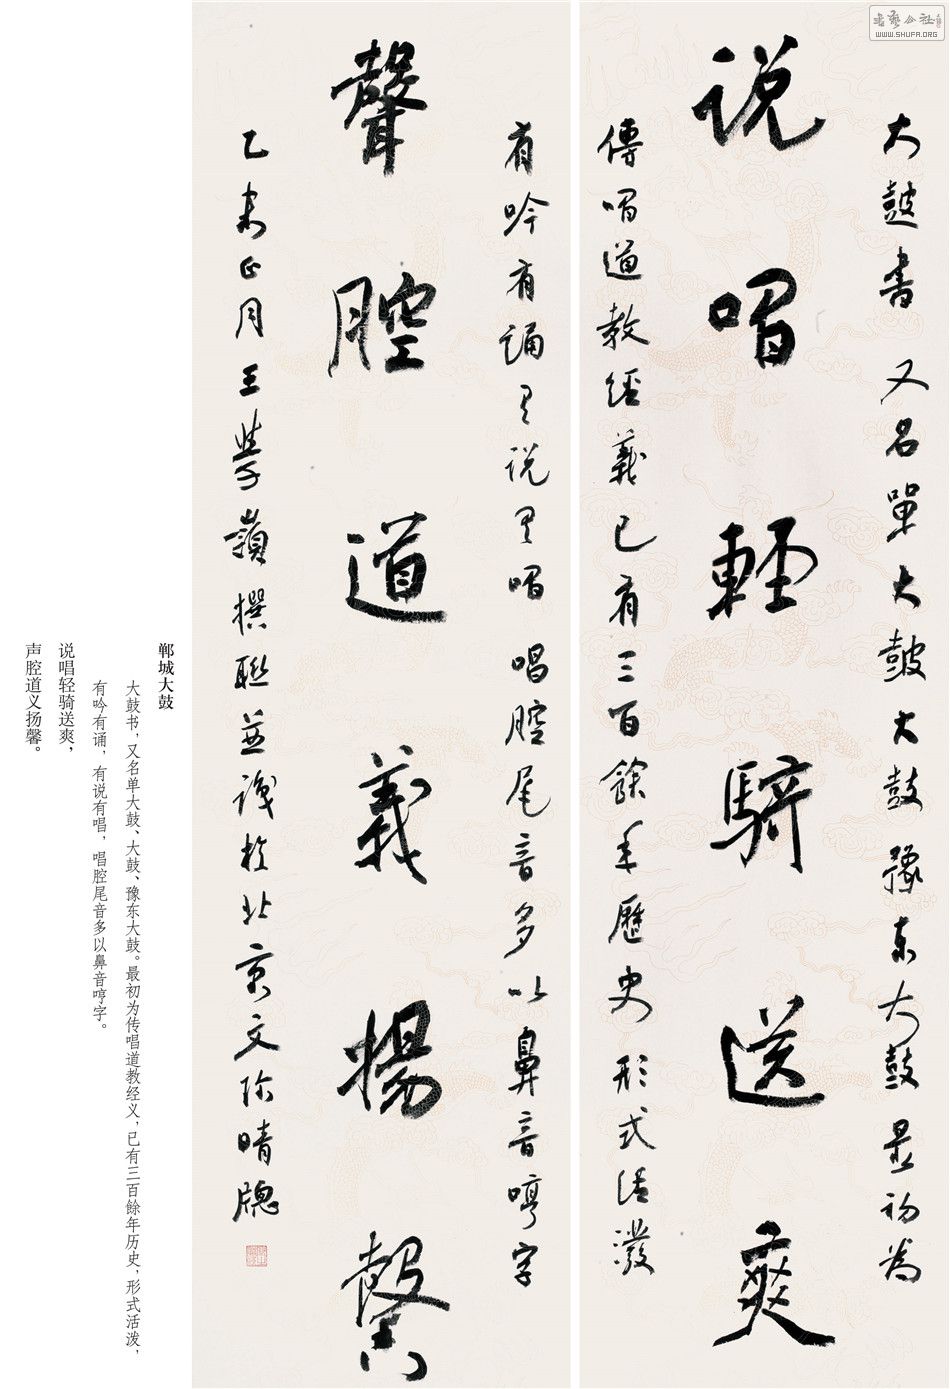 書藝公社
www.SHUFA.ORG
大鼓書又名單大鼓大鼓豫東大鼓最初為
说唱輕騎送爽
傳唱道教經義已有三百餘年歷史形式活潑
有吟有誦有说有唱唱腔尾音多以鼻音哼字
聲腔道義揚馨
乙未正月王學嶺撰聯並識於北京文珍晴牕
郸城大鼓
大鼓书，又名单大鼓、大鼓、豫东大鼓。最初为传唱道教经义，已有三百餘年历史，形式活泼，
有吟有诵，有说有唱，唱腔尾音多以鼻音哼字。
说唱轻骑送爽，
声腔道义扬馨。